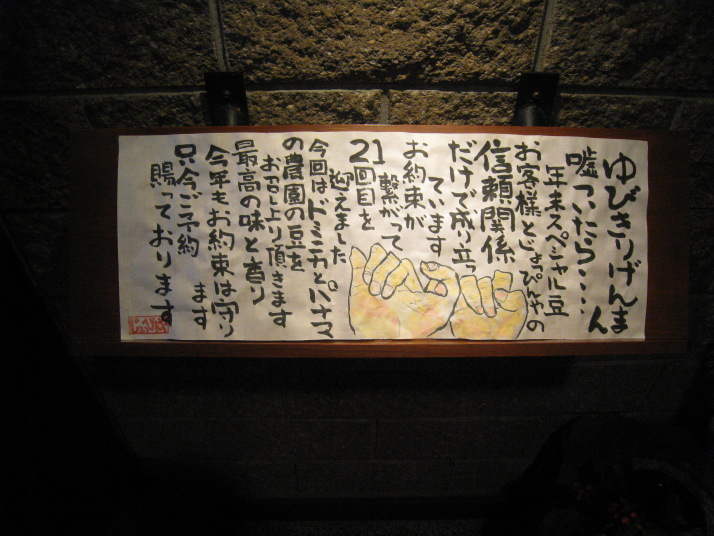 ゆびきりげんまん
嘘ついたら・・・・
年末スペシャル豆
お客様とじょっぴんやの
信頼関係
だけで成り立っ
ています
お約束が
繋がって
21回目を
迎えました
今回はドミニカとパナマ
の農園の豆を
お召し上り頂きます
最高の味と香り
今年もお約束は守り
ます
只今ご予約
賜っております